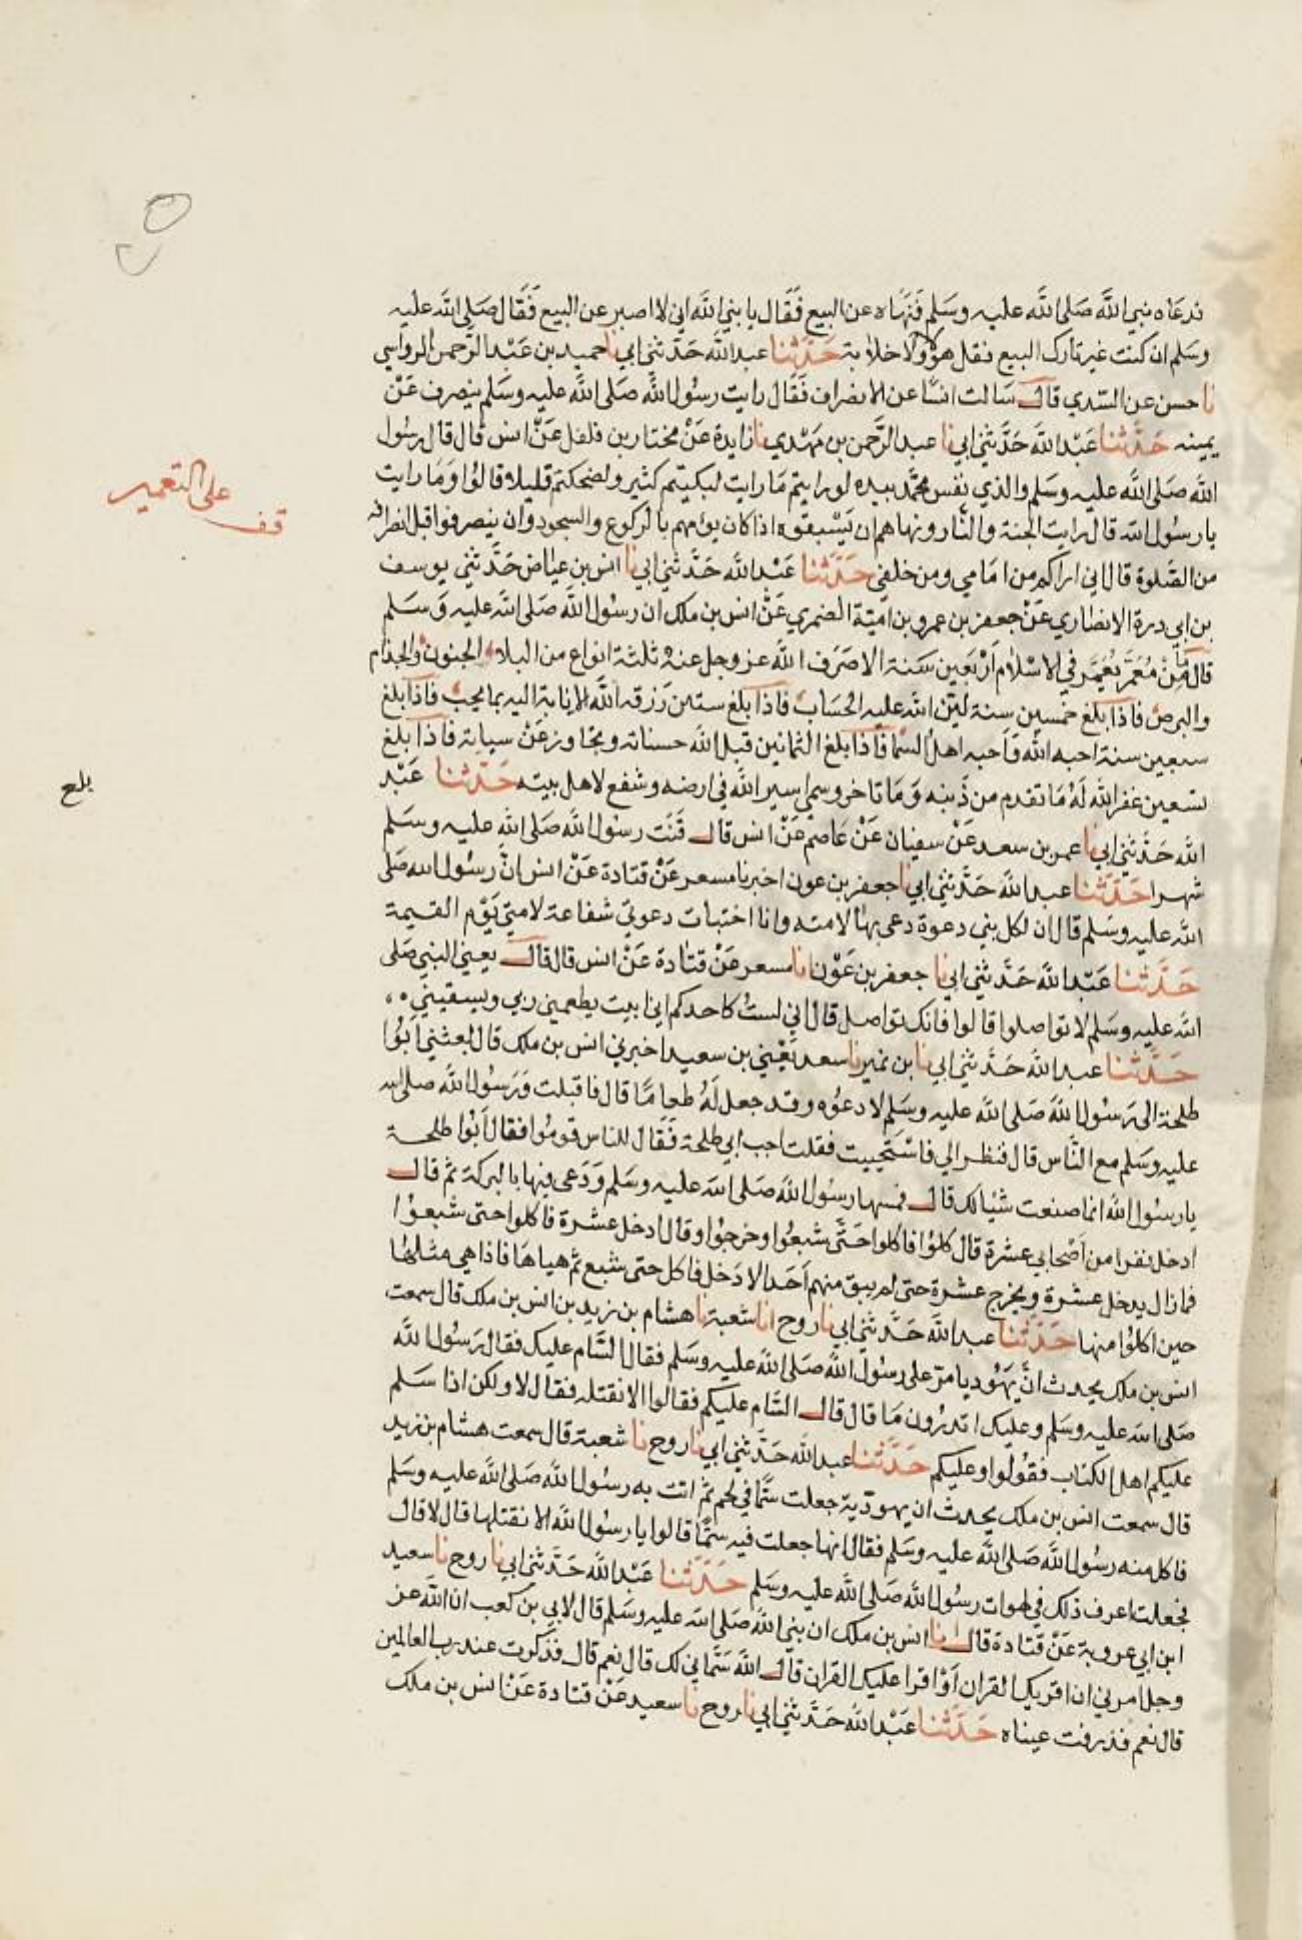 فدعاه نبي الله صلى الله عليه وسلم فنهاه عن البيع فقال يا نبي الله اني لا اصبر عن البيع فقال صلى الله عليه
وسلم ان كنت غير تارك البيع فقل هؤ ولا خلابة حدثنا عبد الله حدثني ابي نا حميد بن عبد الرحمن الرواسي
نا حسن عن السدي قال سالت انسا عن الانصراف فقال رايت رسول الله صلى الله عليه وسلم ينصرف عن
يمينه حدثنا عبد الله حدثني ابي نا عبد الرحمن بن مهدي نا زايدة عن مختار بن فلفل عن انس قال قال رسول
الله صلى الله عليه وسلم والذي نفس محمد بيده لو رايتم ما رايت لبكيتم كثير ولضحكتم قليلا قالوا وما رايت
يا رسول الله قال رايت الجنة والنار ونهاهم ان يسبقوه اذا كان يؤمهم بالركوع والسجود وان ينصرفوا قبل انصرافه
من الصلوة قال اني اراكم من امامي ومن خلفي حدثنا عبد الله حدثني ابي نا انس بن عياض حدثني يوسف
بن ابي درة الانصاري عن جعفر بن عمرو بن امية الضمري عن انس بن ملك ان رسول الله صلى الله عليه وسلم
قال ما من معمر يعمر في الاسلام اربعين سنة الا صرف الله عز وجل عنه ثلثة انواع من البلاء الجنون والجذام
والبرص فاذا بلغ خمسين سنة لين الله عليه الحساب فاذا بلغ ستين رزقه الله الانابة اليه بما يحب فاذا بلغ
سبعين سنة احبه الله واحبه اهل السما فاذا بلغ الثمانين قبل الله حسناته وتجاوز عن سياته فاذا بلغ
تسعين غفر الله له ما تقدم من ذنبه وما تاخر وسمي اسير الله في ارضه وشفع لاهل بيته حدثنا عبد
الله حدثني ابي نا عمر بن سعد عن سفيان عن عاصم عن انس قال قنت رسول الله صلى الله عليه وسلم
شهرا حدثنا عبد الله حدثني ابي نا جعفر بن عون اخبرنا مسعر عن قتادة عن انس ان رسول الله صلى
الله عليه وسلم قال ان لكل نبي دعوة دعى بها لامته وانا اختبات دعوتي شفاعة لامتي يوم القيمة
حدثنا عبد الله حدثني ابي نا جعفر بن عون انا مسعر عن قتادة عن انس قال قال يعني النبي صلى
الله عليه وسلم لا تواصلوا قالوا فانك تواصل قال اني لست كاحدكم اني ابيت يطعمني ربي ويسقيني
حدثنا عبد الله حدثني ابي نا بن نمير نا سعد يعني بن سعيد اخبرني انس بن ملك قال بعثني ابوا
طلحة الى رسول الله صلى الله عليه وسلم لادعوه وقد جعل له طعاما قال فاقبلت ورسول الله صلى الله
عليه وسلم مع الناس قال فنظر الي فاستحييت فقلت اجب ابي طلحة فقال للناس قوموا فقال ابوا طلحة
يا رسول الله انما صنعت شيا لك قال فمسها رسول الله صلى الله عليه وسلم ودعى فيها بالبركة ثم قال
ادخل نفرا من اصحابي عشرة قال كلوا فاكلوا حتى شبعوا وخرجوا وقال ادخل عشرة فاكلوا حتى شبعوا
فما زال يدخل عشرة ويخرج عشرة حتى لم يبق منهم احدا الا دخل فاكل حتى شبع ثم هياها فاذا هي مثلها
حين اكلوا منها حدثنا عبد الله حدثني ابي نا روح انا شعبة نا هشام بن زيد بن انس بن ملك قال سمعت
انس بن ملك يحدث ان يهوديا مر على رسول الله صلى الله عليه وسلم فقال السام عليك فقال رسول الله
صلى الله عليه وسلم وعليك اتدرون ما قال قال السام عليكم فقالوا الا نقتله فقال لا ولكن اذا سلم
عليكم اهل الكتاب فقولوا وعليكم حدثنا عبد الله حدثني ابي نا روح نا شعبة قال سمعت هشام بن زيد
قال سمعت انس بن ملك يحدث ان يهودية جعلت سما في لحم ثم اتت به رسول الله صلى الله عليه وسلم
فاكل منه رسول الله صلى الله عليه وسلم فقال انها جعلت فيه سما قالوا يا رسول الله الا نقتلها قال لا قال
فجعلت اعرف ذلك في لهوات رسول الله صلى الله عليه وسلم حدثنا عبد الله حدثني ابي نا روح نا سعيد
ابن ابي عروبة عن قتادة قال انا انس بن ملك ان نبي الله صلى الله عليه وسلم قال لابي بن كعب ان الله عز
وجل امرني ان اقريك القران او اقرا عليك القران قال الله سماني لك قال نعم قال فذكرت عند رب العالمين
قال نعم فذرفت عيناه حدثنا عبد الله حدثني ابي نا روح نا سعيد عن قتادة عن انس بن ملك
قف
على التعمير
بلغ